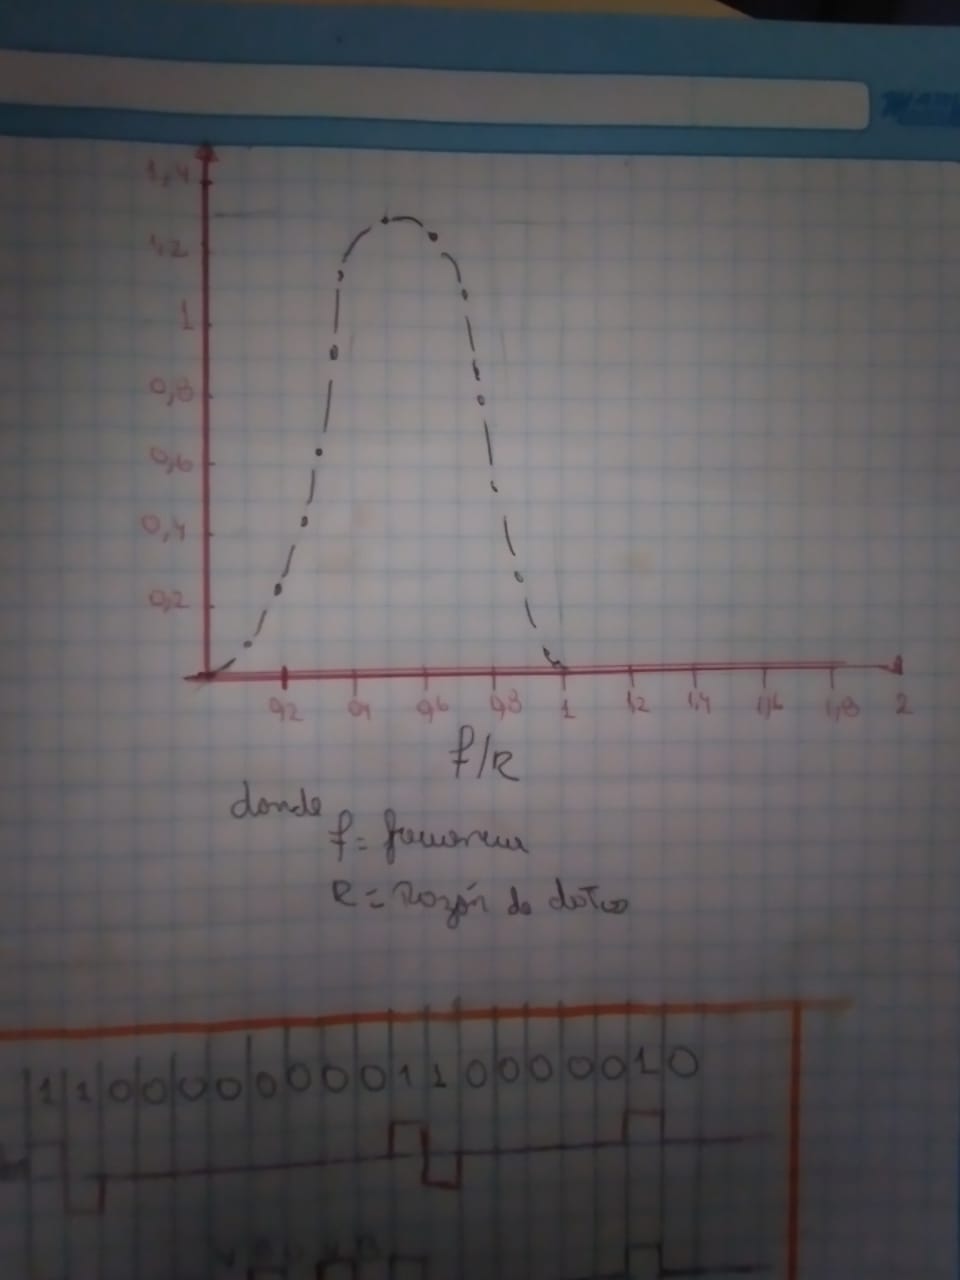 1,4
1,2
1
0,8
0,6
0,4
0,2
0,2 0,4 0,6 0,8 1 1,2 1,4 1,6 1,8 2
f/R
donde
f =
R = Razón de datos
1 1 0 0 0 0 0 0 0 0 1 1 0 0 0 0 0 1 0